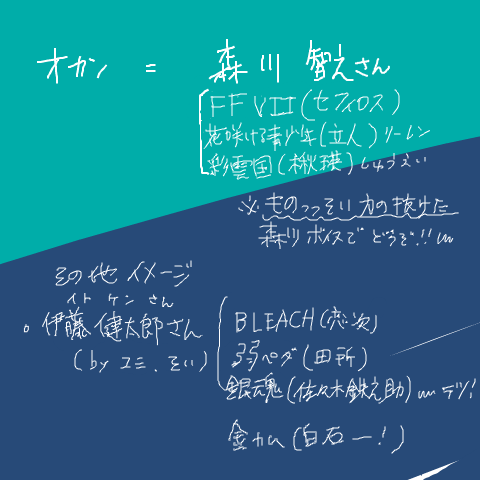 オカン = 森川 智之さん
FFVII(セフィロス)
花咲ける青少年(立人)リーレン
彩雲国(楸瑛)しゅうえい
※ものっっそい力の抜けた
森川ボイスでどうぞ!!w
その他イメージ
イトケンさん
。伊藤健太郎さん
(by ユミ、そい)
BLEACH(恋次)
弱ペダ(田所)
銀魂(佐々木鉄之助)
金カム(白石ー!)